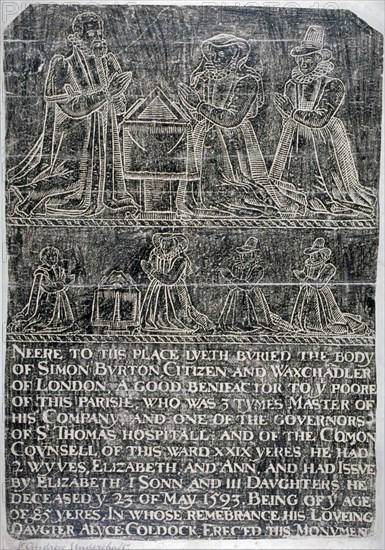 NEERE TO THIS PLACE LYETH BVRIED THE BODY
OF SIMON BVRTON CITIZEN AND WAXCHADLER
OF LONDON, A GOOD BENIFACTOR TO Yͤ POORE
OF THIS PARISHE, WHO WAS 3 TYMES MASTER OF
HIS COMPANY; AND ONE OF THE GOVERNORS
OF Sͭ THOMAS HOSPITALL; AND OF THE COMON
COVNSELL OF THIS WARD XXIX YERES. HE HAD
2 WYVES, ELIZABETH, AND ANN, AND HAD ISSVE
BY ELIZABETH 1 SONN AND III DAVGHTERS HE
DECEASED Yͤ 23 OF MAY 1593. BEING OF Yͤ AGE
OF 85 YERES, IN WHOSE REMEBRANCE HIS LOVEING
DAVGTER ALYCE COLDOCK, ERECTED THIS MONVMEN
St Andrew Undershaft